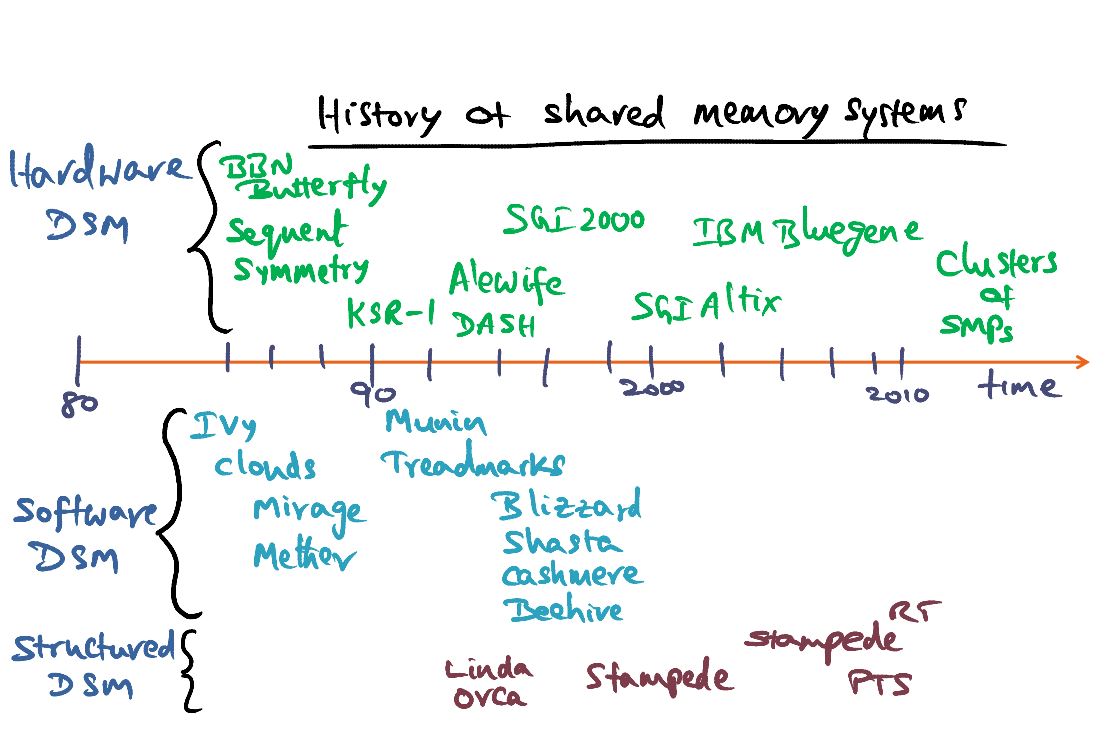 History of shared memory systems
Hardware
DSM
BBN
Butterfly
Sequent
Symmetry
KSR-1
Alewife
DASH
SGI 2000
SGI Altix
IBM Bluegene
Clusters
of
SMPs
80
90
2000
2010
time
Software
DSM
Ivy
Clouds
Mirage
Mether
Munin
Treadmarks
Blizzard
Shasta
Cashmere
Beehive
Structured
DSM
Linda
Orca
Stampede
Stampede RT
PTS